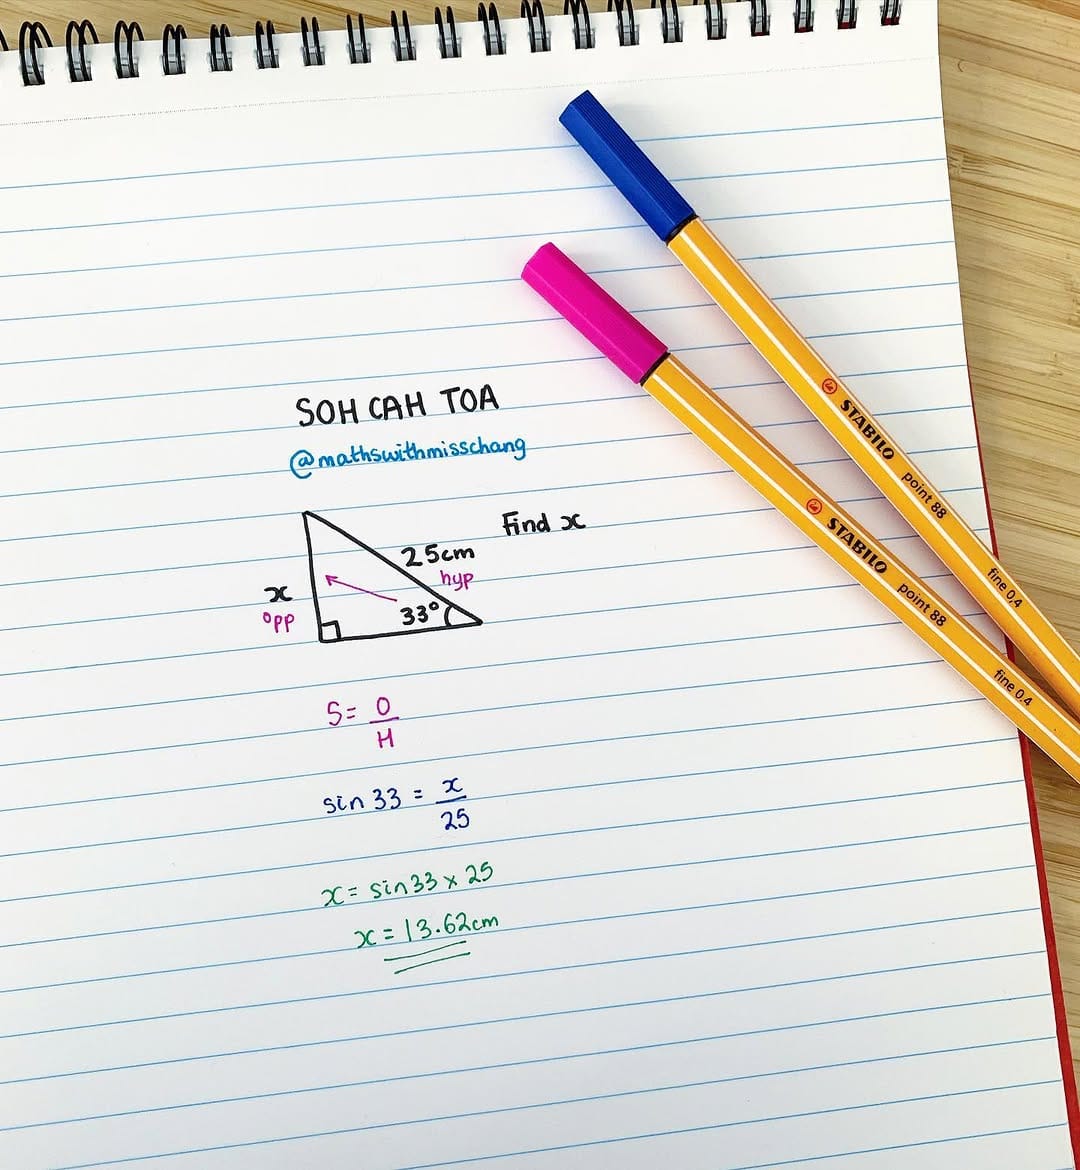 SOH CAH TOA
@mathswithmisschang
Find x
25cm
hyp
x
opp
33°
S = O/H
sin 33 = x/25
x = sin33 × 25
x = 13.62cm
STABILO point 88 fine 0,4
STABILO point 88 fine 0.4